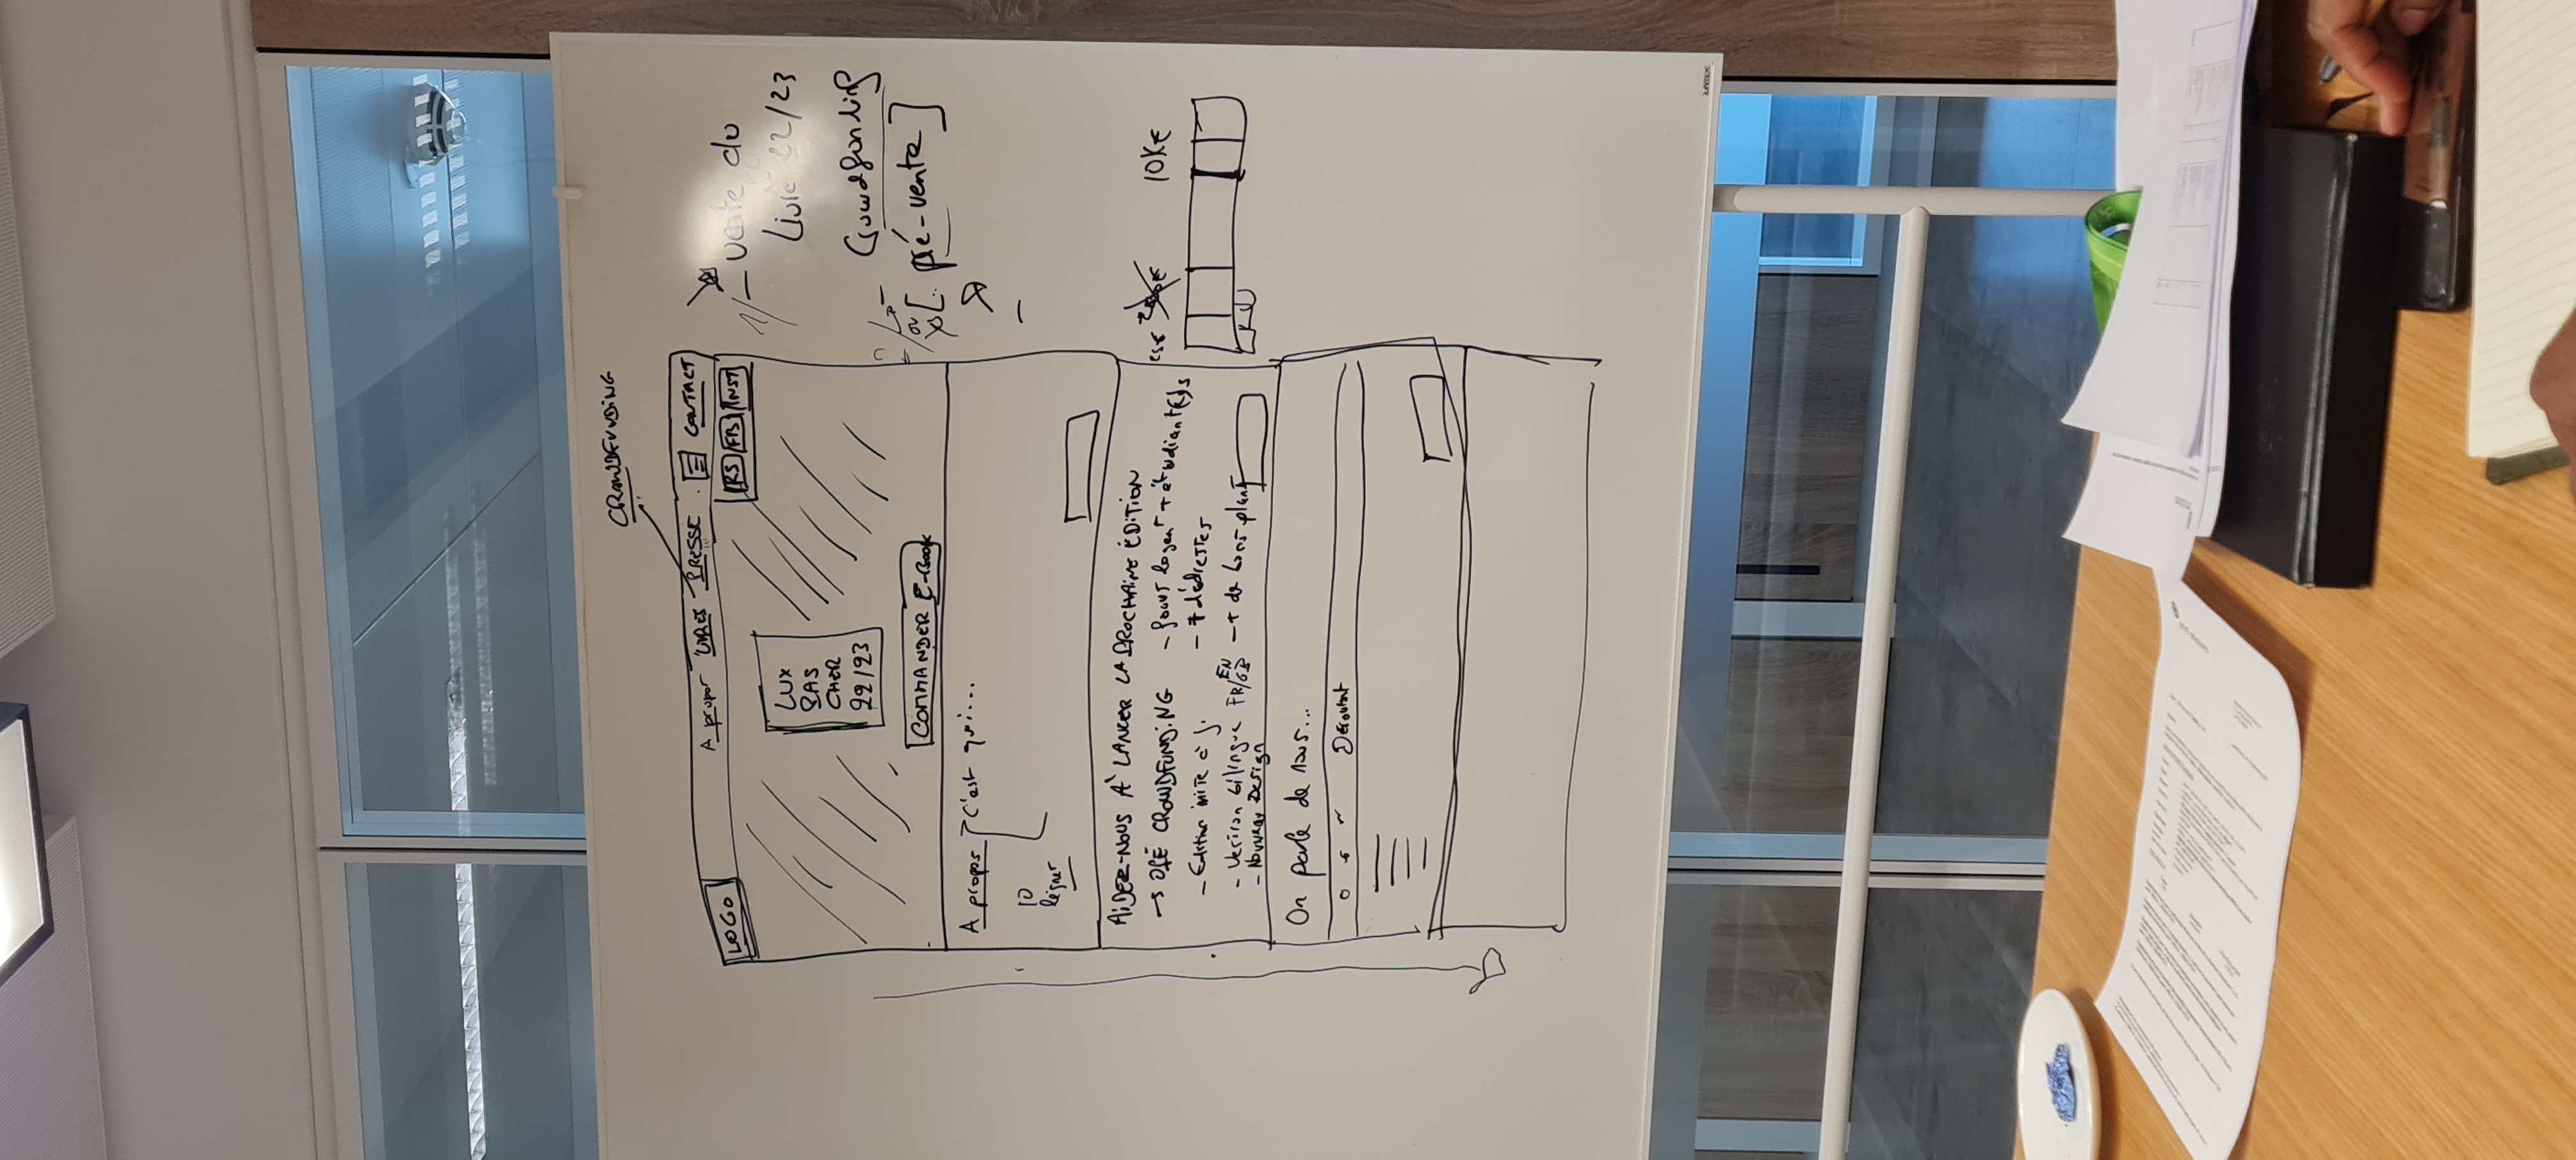 CROWDFUNDING
LOGO
A propos LIVRES PRESSE CONTACT
RS FB INST
LUX
PAS
CHER
22/23
COMMANDER E-BOOK
A propos C'est quoi...
10
lignes
AIDEZ-NOUS À LANCER LA PROCHAINE ÉDITION
→ CROWDFUNDING
- Edition mise à j.
- Version bilingue FR/EN
GB
- Nouveau Design
- focus logent + étudiant(e)s
- + d'adresses
- + de bons plans
On parle de nous...
Déroulant
1/ - vente du
Livre 22/23
- Crowdfunding
ou
[ pré-vente ]
-
10K€